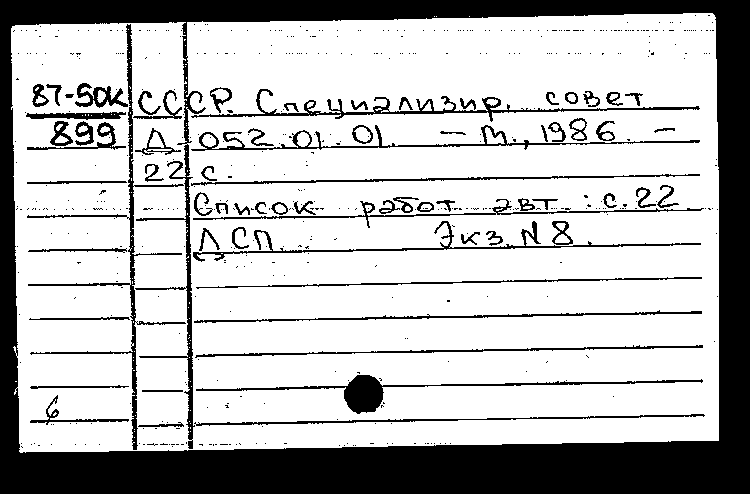 87-50к СССР. Специализир. совет
899 Д 052.01.01. — М., 1986. —
22 с.
Список работ авт.: с.22
ДСП. Экз. N 8.
6